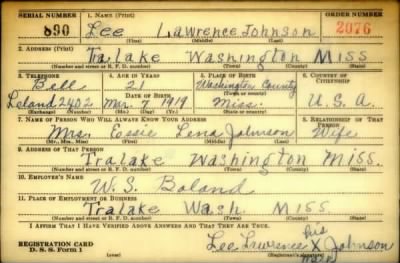 SERIAL NUMBER 1. NAME (Print) ORDER NUMBER
890 Lee Lawrence Johnson 2076
(First) (Middle) (Last)
2. ADDRESS (Print)
Tralake Washington Miss
(Number and street or R. F. D. number) (Town) (County) (State)
3. TELEPHONE 4. AGE IN YEARS 5. PLACE OF BIRTH 6. COUNTRY OF CITIZENSHIP
Bell 21 Washington County
DATE OF BIRTH (Town or county)
Leland 2402 Mar. 7 1919 Miss. U. S. A.
(Exchange) (Number) (Mo.) (Day) (Yr.) (State or country)
7. NAME OF PERSON WHO WILL ALWAYS KNOW YOUR ADDRESS 8. RELATIONSHIP OF THAT PERSON
Mrs. Essie Lena Johnson Wife
(Mr., Mrs., Miss) (First) (Middle) (Last)
9. ADDRESS OF THAT PERSON
Tralake Washington Miss.
(Number and street or R. F. D. number) (Town) (County) (State)
10. EMPLOYER'S NAME
W. S. Boland
11. PLACE OF EMPLOYMENT OR BUSINESS
Tralake Wash Miss
(Number and street or R. F. D. number) (Town) (County) (State)
I AFFIRM THAT I HAVE VERIFIED ABOVE ANSWERS AND THAT THEY ARE TRUE.
his
REGISTRATION CARD Lee Lawrence X Johnson
D. S. S. Form 1 (Registrant's signature) mark